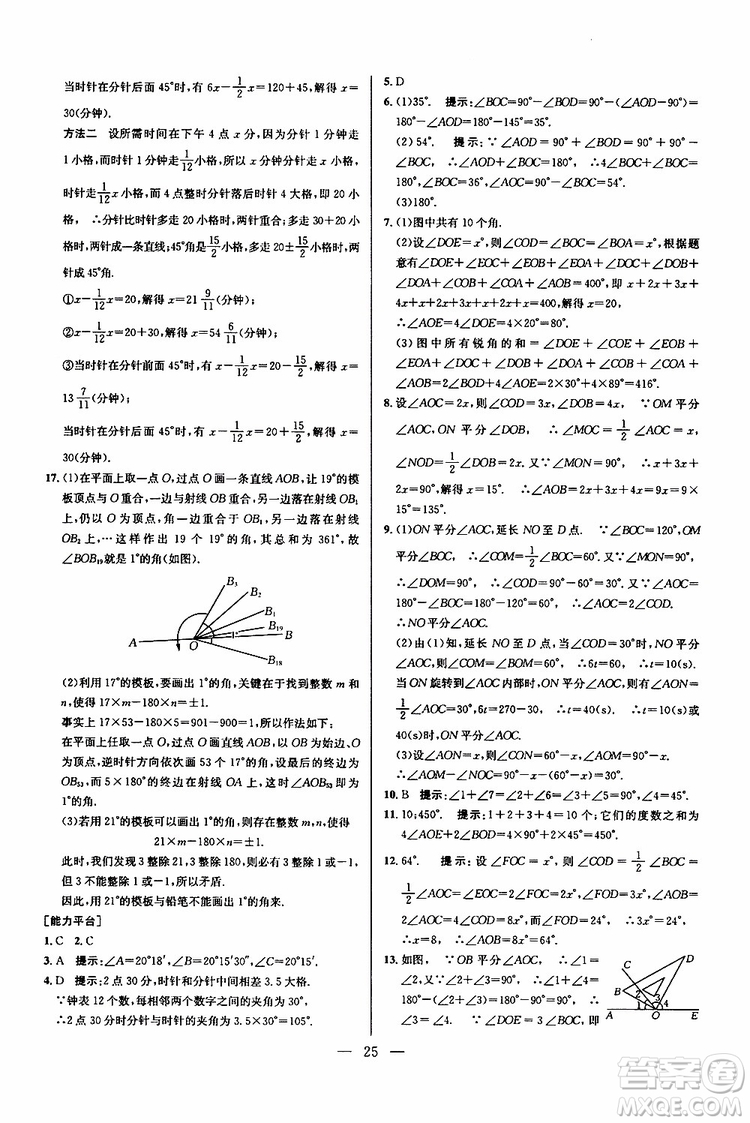 当时针在分针后面 45°时,有 6x−1/2x=120+45,解得 x=
30(分钟).
方法二 设所需时间在下午 4 点 x 分,因为分针 1 分钟走
1 小格,而时针走 1/12 小格,所以 x 分钟分针走 x 小格,
时针走 1/12x 小格,而 4 点整时分针落后时针 4 大格,即 20 小
格, ∴分针比时针多走 20 小格时,两针重合;多走 50 小格
时,两针成一条直线;45°角是 15/2 小格,多走 20±15/2 小格,两
针成 45°角.
①x−1/12x=20,解得 x=21 9/11(分钟);
②x−1/12x=20+30,解得 x=54 6/11(分钟);
③当时针在分针前面 45°时,有 x−1/12x=20−15/2,解得 x=
13 7/11(分钟);
当时针在分针后面 45°时,有 x−1/12x=20+15/2,解得 x=
30(分钟).
17.(1)在平面上取一点 O,过点 O 画一条直线 AOB,让 19°的模
板顶点与 O 重合,一边与射线 OB 重合,另一边落在射线 OB₁
上,仍以 O 为顶点,角一边重合于射线 OB₁,另一边落在射线
OB₂ 上,…这样作出 19 个 19°的角,其总和为 361°,故
∠BOB₁₉就是 1°的角(如图).
B₃
B₂
B₁
B₁₉
1°
A
O
B
B₁₈
(2)利用 17°的模板,要画出 1°的角,关键在于找到整数 m 和
n,使得 17×m−180×n=±1.
事实上 17×53−180×5=901−900=1,所以作法如下:
在平面上任取一点 O,过点 O 画直线 AOB,以 O 为顶点、O
为顶点,逆时针方向依次画 53 个 17°的角,得到终边为射线
OB₅₃,而 5×180°的终边在射线 OA 上,所以∠AOB₅₃即为
1°的角.
(3)若用 21°的模板可以画出 1°的角,则存在整数 m,n 使得
21×m−180×n=±1.
此时,我们发现 3 整除 21,3 整除 180,所以可以 3 整除 1 或−1,
但 3 不能整除 1 或−1,所以矛盾.
因此,用 21°的模板与铅笔不能画出 1°的角来.
[能力平台]
1. C 2. C
3. A 提示:∠A=20°18′,∠B=20°15′30″,∠C=20°15′.
4. D 提示:2 点 30 分时,时针和分针中间相差 3.5 大格.
∵钟表 12 个数,每相邻两个数字之间的夹角为 30°,
∴2 点 30 分时分针与时针的夹角为 3.5×30°=105°.
5. D
6. (1)35°. 提示:∠BOC=90°−∠BOD=90°−∠AOD+
180°−145°=35°.
(2)54° 提示:∵∠AOD=90°+∠BOD=90°+
∠BOD=∠AOC, ∴∠AOD=∠AOC=180°−126°=54°.
(3)180°.
7. (1)图中共有 10 个角.
(2)设∠DOE=x°,则∠BOC=∠BOA=x°,根据题
意有∠DOE+∠EOC+∠EOB+∠EOA+∠DOC+∠DOB
+∠DOA+∠COB+∠COA+∠BOA=400°,即 x+2x+3x+
4x+x+2x+3x+x+2x+x=400,解得 x=20,
∴∠AOE=4∠DOE=4×20°=80°.
(3)图中所有锐角的和=∠DOE+∠COE+∠EOB+
∠EOA+∠DOC+∠DOB+∠DOA+∠COB+∠COA+
∠AOB=2∠BOD+4∠AOE=2×30°+4×89°=416°.
8. 设∠AOC=2x,则∠COD=3x,∠BOD=4x, ∵OM 平分
∠AOC,ON 平分∠DOB, ∴∠MOC=1/2∠AOC=x,
∠NOD=1/2∠BOD=2x. 又∵∠MON=90°, ∴x+3x+
2x=90°,解得 x=15°. ∴∠AOB=2x+3x+4x=9x=9×
15°=135°.
9. (1)ON 平分∠AOC,延长 NO 至 D 点. ∵∠BOC=120°,OM
平分∠BOC, ∴∠COM=1/2∠BOC=60°. ∵∠MON=90°,
∴∠DOM=90°, ∴∠COD=30°. ∵∠BOC=120°,
∴∠AOC=60°. ∴∠AOC=2∠COD.
∴NO 平分∠AOC.
(2)由(1)知,延长 NO 至 D 点,∠COD=30°时,NO 平分
∠AOC, ∴∠BON=60°, ∴6t=60, ∴t=10(s).
当 ON 旋转到∠AOC 内部时,ON 平分∠AOC, ∴∠NOC=
1/2∠AOC=30°,6t=270−30, ∴t=40(s), ∴t=10(s)或
40(s)时,ON 平分∠AOC.
(3)设∠AON=x°,则∠AOM=90°−x°,∠NOC=60°−x°.
∴∠AOM−∠NOC=(90°−x°)−(60°−x°)=30°.
10. B 提示:∠1+∠7=∠2+∠6=∠3+∠5=∠4+∠4=90°.
11. 10;450°. 提示:1+2+3+4=10 个;它们的度数之和为
4∠AOM+2∠COD=4×90°+2×45°=450°.
12. 64°. 提示:设∠FOC=x°,则∠AOE=4x°+1/2x°=
1/2∠AOC=1/2×9x°, ∴∠COE=4.5x°. ∴4.5x−x=28,
∴x=8, ∴∠AOC=9x°=72°, ∴∠AOF=8x°=64°.
13. 如图, ∵OB 平分∠AOC, ∴∠1=
∠2,又∵∠BOD=90°, ∴∠1+∠4=
90°,∠2+∠3=90°(等角的余角相等),
∴∠3=∠4. ∵∠DOE=∠BOC,即
C
D
B
2
3
1
4
A
O
E
— 25 —
答案圈
MXQE.COM